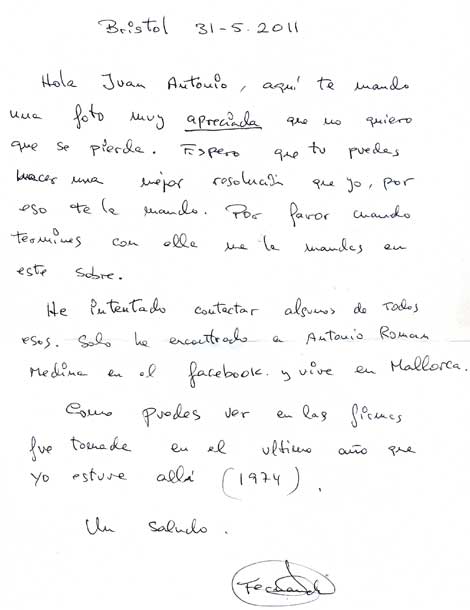 Bristol 31-5-2011
Hola Juan Antonio, aquí te mando
una foto muy apreciada que no quiero
que se pierda. Espero que tu puedas
hacer una mejor resolución que yo, por
eso te la mando. Por favor cuando
termines con ella me la mandas en
este sobre.
He intentado contectar algunos de todos
esos. Solo he encontrado a Antonio Roman
Medina en el facebook. y vive en Mallorca.
Como puedes ver en las firmas
fue tomada en el ultimo año que
yo estuve allá (1974).
Un saludo.